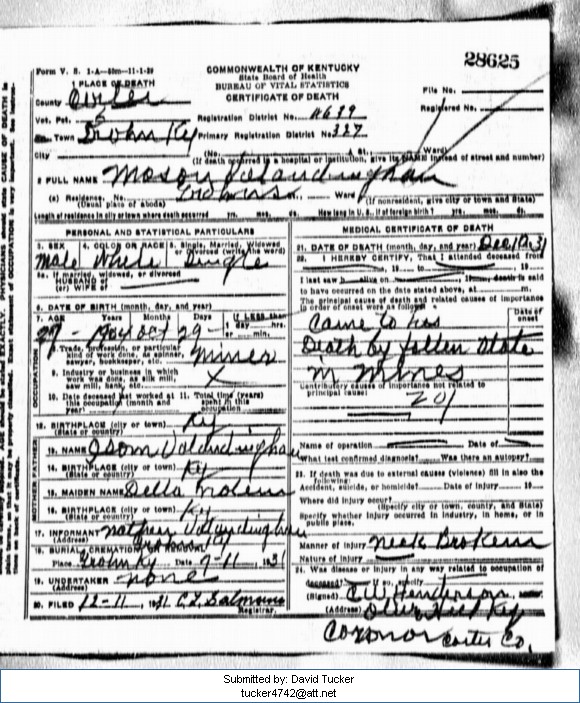 28625
Form V. S. 1-A
COMMONWEALTH OF KENTUCKY
State Board of Health
BUREAU OF VITAL STATISTICS
CERTIFICATE OF DEATH
1 PLACE OF DEATH
County Carter
File No.
Registered No.
Vot. Pct. 5
Registration District No.
Town Grahn Ky Primary Registration District No. 327
City (No. St. Ward)
(If death occurred in a hospital or institution, give its NAME instead of street and number)
2 FULL NAME Mason Valandingham
(a) Residence, No. St. Ward
(Usual place of abode) (If nonresident, give city or town and State)
Length of residence in city or town where death occurred yrs. mos. ds. How long in U. S., if of foreign birth? yrs. mos. ds.
PERSONAL AND STATISTICAL PARTICULARS
3. SEX 4. COLOR OR RACE 5. Single, Married, Widowed or Divorced (write the word)
Male White Single
5a. If married, widowed, or divorced
HUSBAND of
(or) WIFE of
6. DATE OF BIRTH (month, day, and year)
7. AGE Years Months Days If LESS than
1 day hrs.
or min.
8. Trade, profession, or particular
kind of work done, as spinner,
sawyer, bookkeeper, etc. Miner
9. Industry or business in which
work was done, as silk mill,
saw mill, bank, etc. X
10. Date deceased last worked at 11. Total time (years)
this occupation (month and spent in this
year) occupation
12. BIRTHPLACE (city or town) Ky
(State or country)
13. NAME Isom Valandingham
14. BIRTHPLACE (city or town) Ky
(State or country)
15. MAIDEN NAME Della
16. BIRTHPLACE (city or town) Ky
(State or country)
17. INFORMANT Valandingham
(Address)
18. BURIAL, CREMATION OR REMOVAL
Place Grahn Ky Date
19. UNDERTAKER none
(Address)
20. FILED 12-11, 1931
Registrar.
MEDICAL CERTIFICATE OF DEATH
21. DATE OF DEATH (month, day, and year) Dec 10 31
22. I HEREBY CERTIFY, That I attended deceased from
, 19 to , 19
I last saw h alive on , 19 death is said
to have occurred on the date stated above, at m.
The principal cause of death and related causes of importance
in order of onset were as follows:
Date of onset
Came to his
Death by fallen slate
in mines
Contributory causes of importance not related to
principal cause:
201
Name of operation Date of
What test confirmed diagnosis? Was there an autopsy?
23. If death was due to external causes (violence) fill in also the
following:
Accident, suicide, or homicide? Date of injury 19
Where did injury occur?
(Specify city or town, county, and State)
Specify whether injury occurred in industry, in home, or in
public place.
Manner of injury Neck Broken
Nature of injury
24. Was disease or injury in any way related to occupation of
deceased? If so, specify
(Signed) Henderson
(Address) Olive Hill Ky
Coronor Carter Co.
Submitted by: David Tucker
tucker4742@att.net